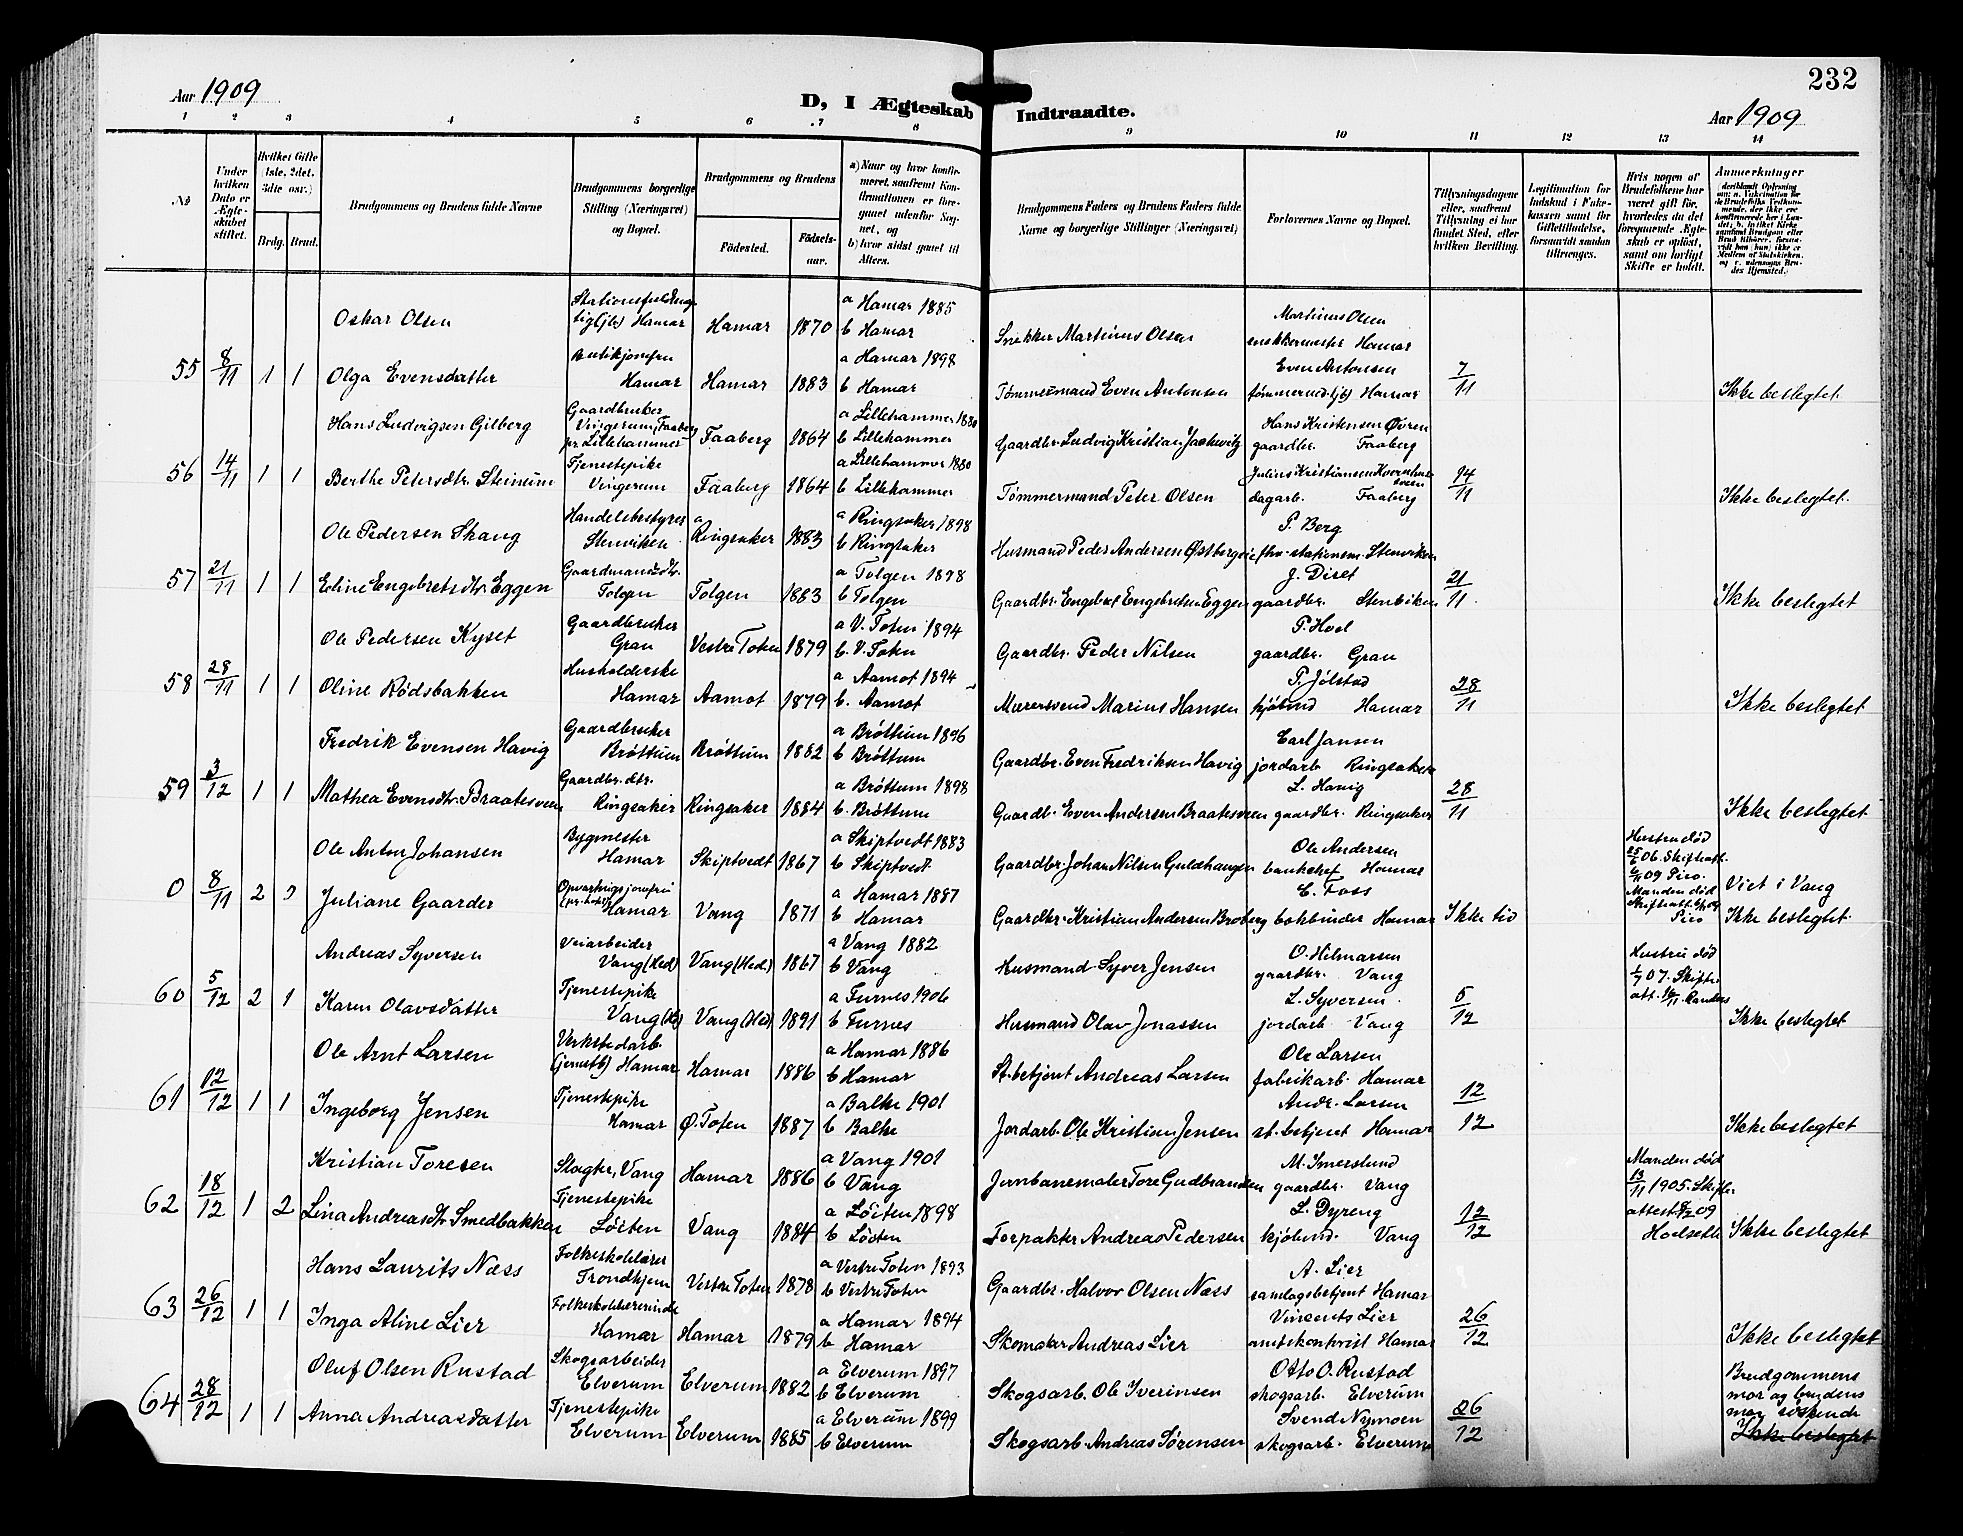 232
Aar 1909
D, I Ægteskab Indtraadte.
Aar 1909
1 2 3 4 5 6 7 8 9 10 11 12 13 14
No
Under hvilken Dato er Ægteskabet stiftet.
Hvilket Gifte (1ste, 2det, 3die osv.)
Brdg. Brud.
Brudgommens og Brudens fulde Navne
Brudgommens borgerlige Stilling (Næringsvei) og Bopæl.
Brudgommens og Brudens
Fødested.
Fødselsaar.
a) Naar og hvor konfirmeret, saafremt Konfirmationen er foregaaet udenfor Sognet, og
b) hvor sidst gaaet til Alters.
Brudgommens Faders og Brudens Faders fulde Navne og borgerlige Stillinger (Næringsvei)
Forlovernes Navne og Bopæl.
Tillysningsdagene eller, saafremt Tillysning ei har fundet Sted, efter hvilken Bevilling.
Legitimation for Indskud i Enkekassen samt for Giftetilladelse, forsaavidt saadan tiltrænges.
Hvis nogen af Brudefolkene har været gift før, hvorledes da det foregaaende Ægteskab er opløst, samt om lovligt Skifte er holdt.
Anmærkninger
Oskar Olsen Hamar 1870 a Hamar 1885 b Hamar Snekker Martinius Olsen Martinius Olsen snekkermester Hamar
55 8/11 1 1 Olga Evensdatter Butikjomfru Hamar Hamar 1883 a Hamar 1898 b Hamar Tømmermand Even Antonsen Even Antonsen Hamar 7/11 Ikke beslegtet
Hans Ludvigsen Gilberg Gaardbruker Vingerum, Faaberg pr. Lillehammer Faaberg 1864 a Lillehammer 1880 b Lillehammer Gaardbr. Ludvig Kristian Hans Kristensen Øvren gaardbr. Faaberg
56 14/11 1 1 Berthe Petersdtr. Steinum Tjenestepike Vingerum Faaberg 1864 a Lillehammer 1880 b Lillehammer Tømmermand Peter Olsen Julius Kristiansen dagarb. Faaberg 14/11 Ikke beslegtet.
Ole Pedersen Skang Handelsbestyrer Stenviken Ringsaker 1883 a Ringsaker 1898 b Ringsaker Husmand Peder Andersen P. Berg Stenviken
57 21/11 1 1 Eline Engebretsdtr. Eggen Gaardmandsdtr. Tolgen Tolgen 1883 a Tolgen 1898 b Tolgen Gaardbr. Engebret Engebretsen Eggen J. Diset gaardbr. Stenviken 21/11. Ikke beslegtet
Ole Pedersen Kyset Gaardbruker Gran Vestre Toten 1879 a V. Toten 1894 b. V. Toten Gaardbr. Peder Nilsen P. Hoel gaardbr. Gran
58 28/11 1 1 Oline Rødsbakken Husholderske Hamar Aamot 1879 a Aamot 1894 b. Aamot Murersvend Marius Hansen P. Jølstad kjøbmd Hamar 28/11 Ikke beslegtet
Fredrik Evensen Havig Gaardbruker Brøttum Brøttum 1882 a Brøttum 1896 b Brøttum Gaardbr. Even Fredriksen Havig Carl Jansen jordarb Ringsaker
59 3/12 1 1 Mathea Evensdtr. Braatesveen Gaardbr. dtr. Ringsaker Ringsaker 1884 a Brøttum 1898 b. Brøttum Gaardb. Even Andersen Braatesveen L. Havig gaardbr. Ringsaker 28/11 Ikke beslegtet
Ole Anton Johansen Bygmester Hamar Skiptvedt 1867 a Skiptvedt 1883 b Skiptvedt Gaardbr. Johan Nilsen Guldhaugen Ole Andersen bankchef Hamar Hustru død
0 8/11 2 Juliane Gaarder Hamar Vang 1871 a Hamar 1887 b Hamar Gaardbr. Kristian Andersen Broberg C. Foss bokbinder Hamar Ikke tid Manden død Viet i Vang Ikke beslegtet.
Andreas Syversen Veiarbeider Vang (Hed) Vang (Hed.) 1867 a Vang 1882 b Vang Husmand Syver Jensen O. Hilmarsen gaardbr. Vang Hustru død
60 5/12 2 1 Karen Olavsdatter Tjenestepike Vang (Hed) 1891 a Furnes 1906 b Furnes Husmand Olav Jonassen L. Syversen jordarb. Vang 5/12 Ikke beslegtet
Ole Arnt Larsen Verkstedarb. Hamar Hamar 1886 a Hamar 1886 b Hamar St. betjent Andreas Larsen Ole Larsen fabrikarb. Hamar
61 12/12 1 1 Ingeborg Jensen Tjenestepike Hamar Ø. Toten 1887 a Balke 1901 b Balke Jordarb. Ole Kristian Jensen Andr. Larsen st. betjent Hamar 12/12 Ikke beslegtet
Kristian Toresen Slagter, Vang Hamar 1886 a Vang 1901 b Vang Jernbanemaler Tore Gudbrandsen M. Imerslund gaardbr. Vang Manden død 13/11 1905. Skifteattest 09 Hoelseth
62 18/12 1 2 Lina Andreasdtr Smedbakken Tjenestepike Løiten Vang 1884 a Løiten 1898 b Løiten Forpakter Andreas Pedersen L. Dyreng kjøbmd. Vang 12/12 Ikke beslegtet
Hans Laurits Næss Folkeskolelærer Trondhjem Vestre Toten 1878 a Vestre Toten 1893 b Vestre Toten Gaardbr. Halvor Olsen Næss A. Lier samlagsbetjent Hamar
63 26/12 1 1 Inga Aline Lier Folkeskolelærerinde Hamar Hamar 1879 a Hamar 1894 b Hamar Skomaker Andreas Lier Vincents Lier amtskontorist Hamar 26/12 Ikke beslegtet
Oluf Olsen Rustad Skogsarbeider Elverum Elverum 1882 a Elverum 1897 b Elverum Skogsarb. Ole Iverinsen Otto O. Rustad skogsarb. Elverum Brudgommens mor og brudens mor søskende
64 28/12 1 1 Anna Andreasdatter Tjenestepike Elverum Elverum 1885 a Elverum 1899 b Elverum Skogsarb. Andreas Sørensen Svend Nymoen skogsarb. Elverum 26/12 Ikke beslegtet